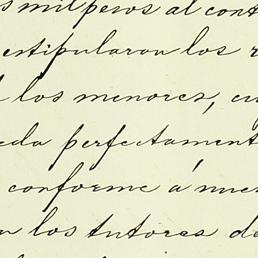 mil pesos al cont
estipularon los r
los menores, cu
eda perfectament
conforme á nues
n los tutores de